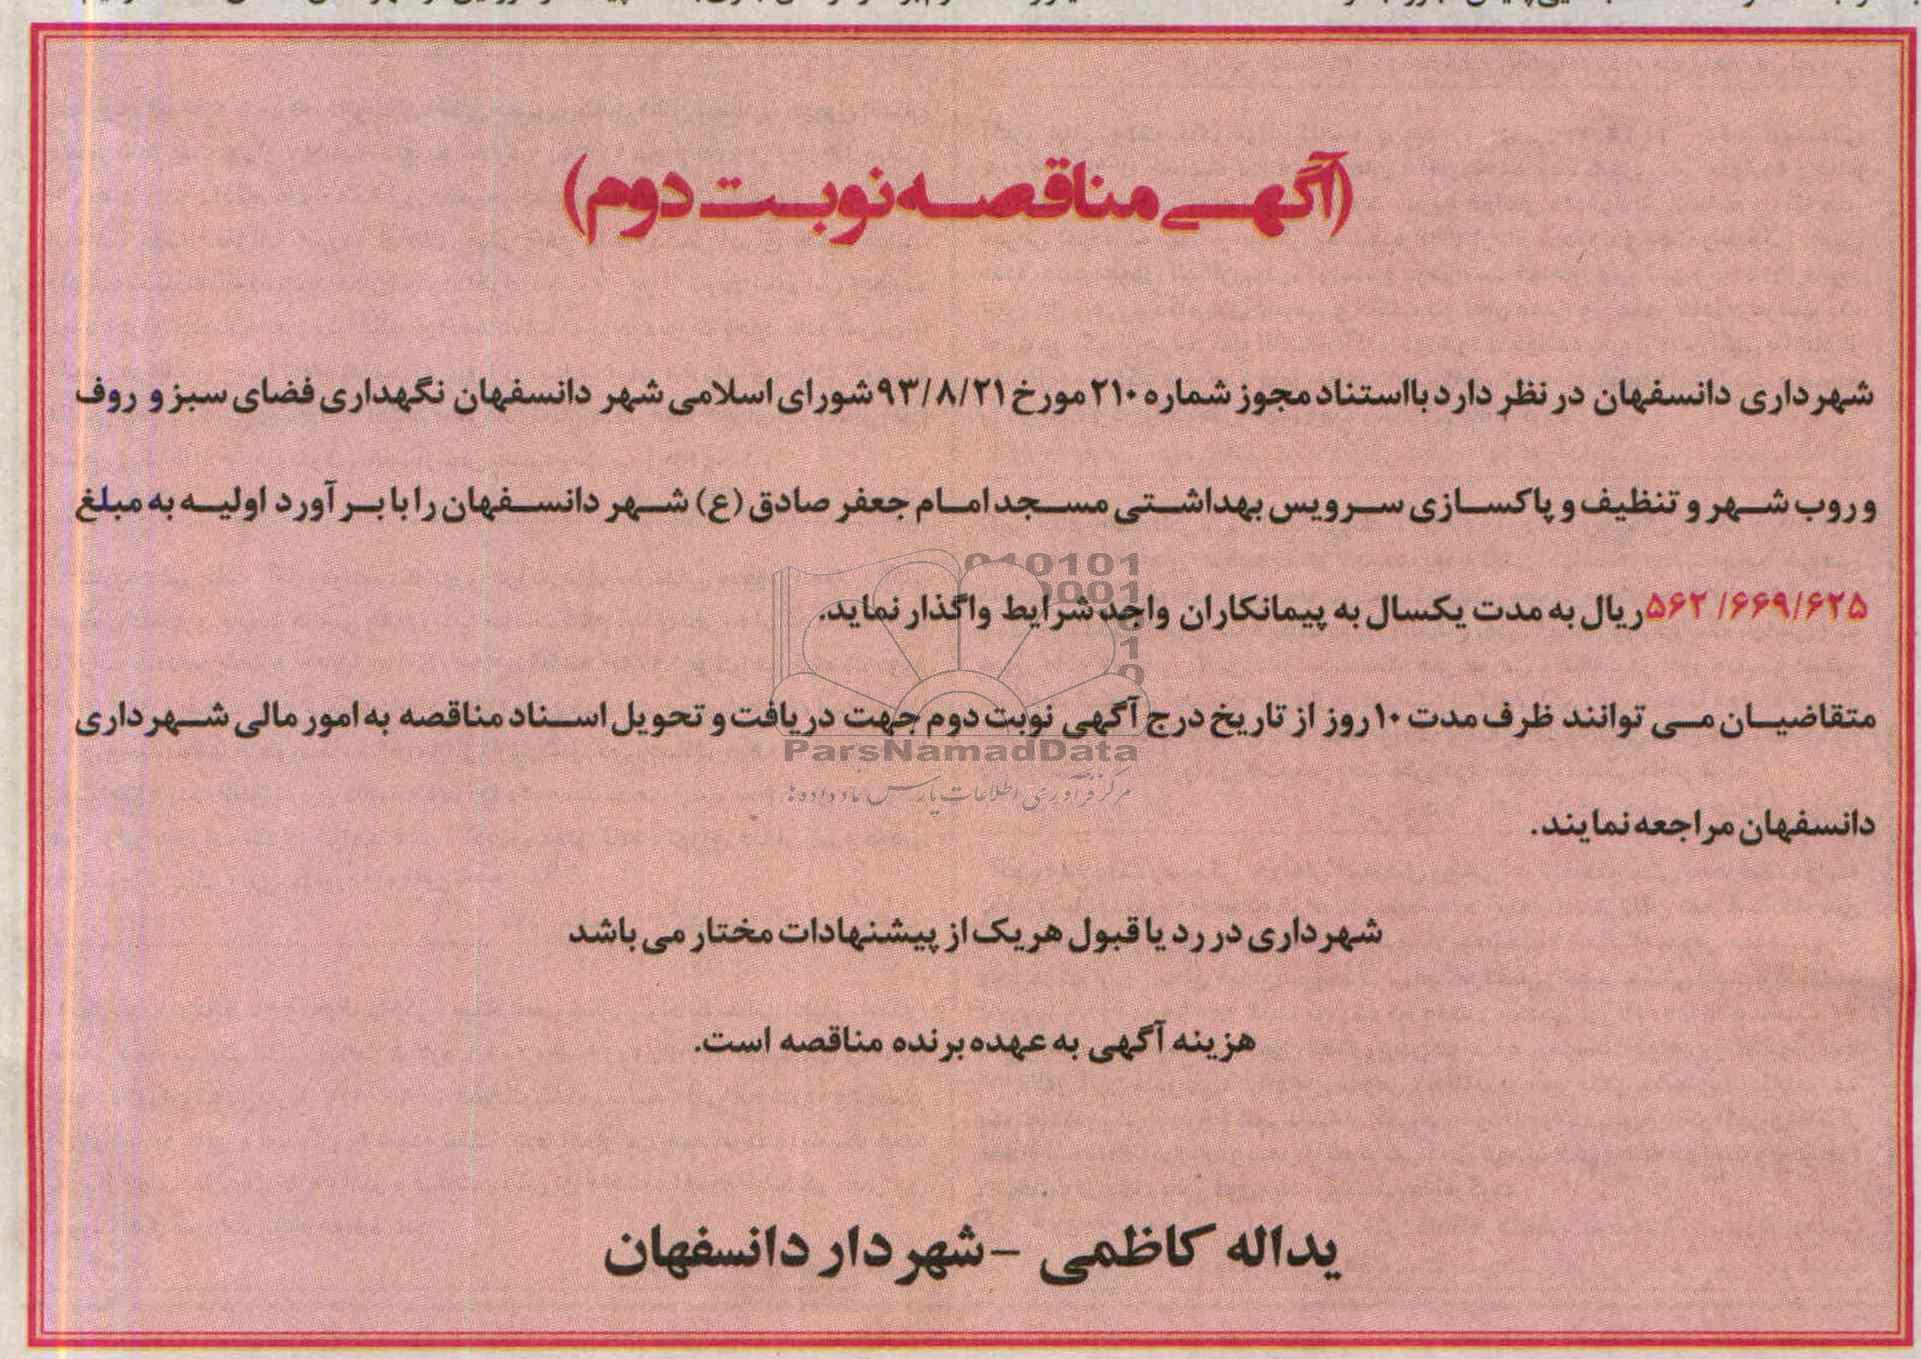 (آگهی مناقصه نوبت دوم)
شهرداری دانسفهان در نظر دارد بااستناد مجوز شماره ۲۱۰ مورخ ۹۳/۸/۲۱ شورای اسلامی شهر دانسفهان نگهداری فضای سبز و روف
و روب شهر و تنظیف و پاکسازی سرویس بهداشتی مسجد امام جعفر صادق (ع) شهر دانسفهان را با برآورد اولیه به مبلغ
۵۶۲/۶۶۹/۶۲۵ ریال به مدت یکسال به پیمانکاران واجد شرایط واگذار نماید.
متقاضیان می توانند ظرف مدت ۱۰ روز از تاریخ درج آگهی نوبت دوم جهت دریافت و تحویل اسناد مناقصه به امور مالی شهرداری
دانسفهان مراجعه نمایند.
شهرداری در رد یا قبول هریک از پیشنهادات مختار می باشد
هزینه آگهی به عهده برنده مناقصه است.
یداله کاظمی - شهردار دانسفهان
ParsNamadData
مرکز فرآوری اطلاعات پارس نماد داده ها